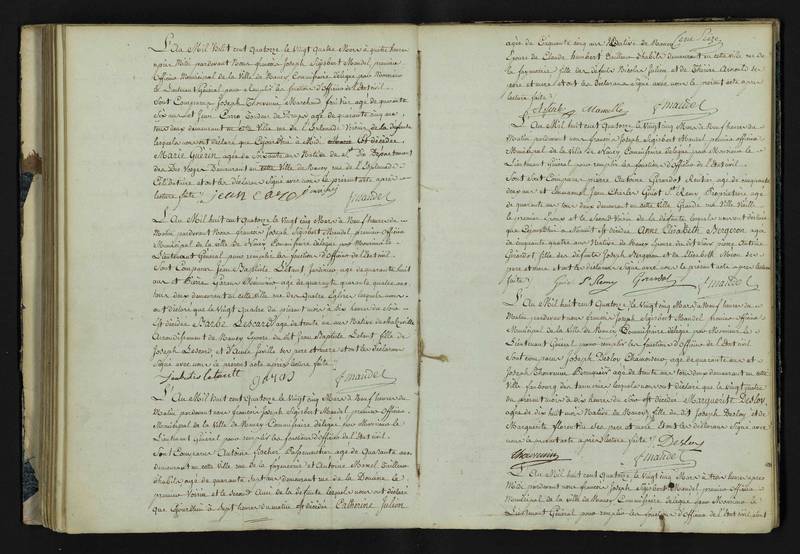 L'An Mil huit cent Quatorze le Vingt Quatre Mars à quatre heures
après Midi pardevant Nous françois Joseph Sigisbert Mandel, premier
Officier Municipal de la Ville de Nancy Commissaire délégué par Monsieur
le Lieutenant Général pour remplir les fonctions d'Officier de l'Etat civil.
Sont Comparus Joseph Thouvenin Marchand fruitier agé de quarante
Six ans et Jean Caro agé de quarante cinq ans,
tous deux demeurant en cette Ville rue de l'Esplanade Voisins de la défunte
lesquels nous ont déclaré que Cejourd'hui à Midi est décédée
Marie Guerin agée de Soixante ans Native de St. Dié Département
des Vosges Demeurant en cette Ville de Nancy rue de l'Esplanade
Célibataire et ont les déclarans Signé avec nous le présent acte après
lecture faite. Jean Caro Mandel
L'An Mil huit cent Quatorze le Vingt cinq Mars à Neuf heures du
Matin pardevant Nous françois Joseph Sigisbert Mandel premier Officier
Municipal de la Ville de Nancy Commissaire délégué par Monsieur le
Lieutenant Général pour remplir les fonctions d'Officier de l'Etat civil.
Sont Comparus Jean Baptiste Letant, Jardinier agé de quarante huit
ans et Pierre agé de quarante quatre ans
tous deux demeurant en cette Ville rue des Quatre Eglises lesquels nous
ont déclaré que le Vingt Quatre du présent mois à dix heures du Soir
Est décédée Barbe Lescard agée de trente six ans Native de
Arrondissement de Nancy Epouse du dit Jean Baptiste Letant fille de
Joseph Lescard et d'Anne ses père et mère et ont les déclarans
Signé avec nous le présent acte après lecture faite.
Mandel
L'An Mil huit cent Quatorze le Vingt cinq Mars à Neuf heures du
Matin pardevant Nous françois Joseph Sigisbert Mandel premier Officier
Municipal de la Ville de Nancy Commissaire délégué par Monsieur le
Lieutenant Général pour remplir les fonctions d'Officier de l'Etat civil.
Sont Comparus Antoine agé de Quarante ans
demeurant en cette Ville rue de la fayencerie et Antoine Tailleur
d'habits agé de quarante huit ans demeurant rue de la Douane le
premier Voisin et le Second Ami de la défunte lesquels nous ont déclaré
que Cejourd'hui à Sept heures du matin est décédée Catherine Julien
agée de Cinquante cinq ans Native de Nancy
Epouse de Claude Humbert Tailleur d'habits demeurant en cette ville rue de
la fayencerie fille des défunts Nicolas Julien et de Thérèse ses
père et mère et ont les déclarans Signé avec nous le présent acte après
lecture faite. Mandel
L'An Mil huit cent Quatorze le Vingt cinq Mars à Neuf heures du
Matin pardevant nous françois Joseph Sigisbert Mandel premier officier
Municipal de la Ville de Nancy Commissaire délégué par Monsieur le
Lieutenant Général pour remplir les fonctions d'Officier de l'Etat civil.
Sont Comparus Pierre Antoine Girardot Rentier agé de cinquante
deux ans et Emmanuel Jean Charles Guiot St. Remy Propriétaire agé
de quarante six ans tous deux demeurant en cette Ville Grande rue Ville Vieille
le premier Epoux et le Second Voisin de la défunte lesquels nous ont déclaré
que Cejourd'hui à Minuit est décédée Anne Elisabeth Bergeron agée
de cinquante quatre ans Native de Nancy Epouse du dit Sieur Pierre Antoine
Girardot fille des défunts Joseph Bergeron et de Elisabeth ses
père et mère et ont les déclarans Signé avec nous le présent acte après lecture
faite. Guiot St Remy Girardot Mandel
L'An Mil huit cent Quatorze le Vingt cinq Mars à Neuf heures du
Matin pardevant nous françois Joseph Sigisbert Mandel premier officier
Municipal de la Ville de Nancy Commissaire délégué par Monsieur le
Lieutenant Général pour remplir les fonctions d'Officier de l'Etat civil
Sont comparus Joseph Desloy Chamoiseur agé de quarante ans et
Joseph Thouvenin agé de trente six ans tous deux demeurant en cette
Ville faubourg des tanneries lesquels nous ont déclaré que le Vingt quatre
du présent mois à dix heures du Soir est décédée Marguerite Desloy
agée de dix huit mois Native de Nancy fille du dit Joseph Desloy et de
Marguerite ses père et mère et ont les déclarans Signé avec
nous le présent acte après lecture faite. Desloy
Thouvenin Mandel
L'An Mil huit cent Quatorze le Vingt cinq Mars à trois heures après
Midi pardevant nous françois Joseph Sigisbert Mandel premier Officier
Municipal de la Ville de Nancy Commissaire délégué par Monsieur le
Lieutenant Général pour remplir les fonctions d'Officier de l'Etat civil sont